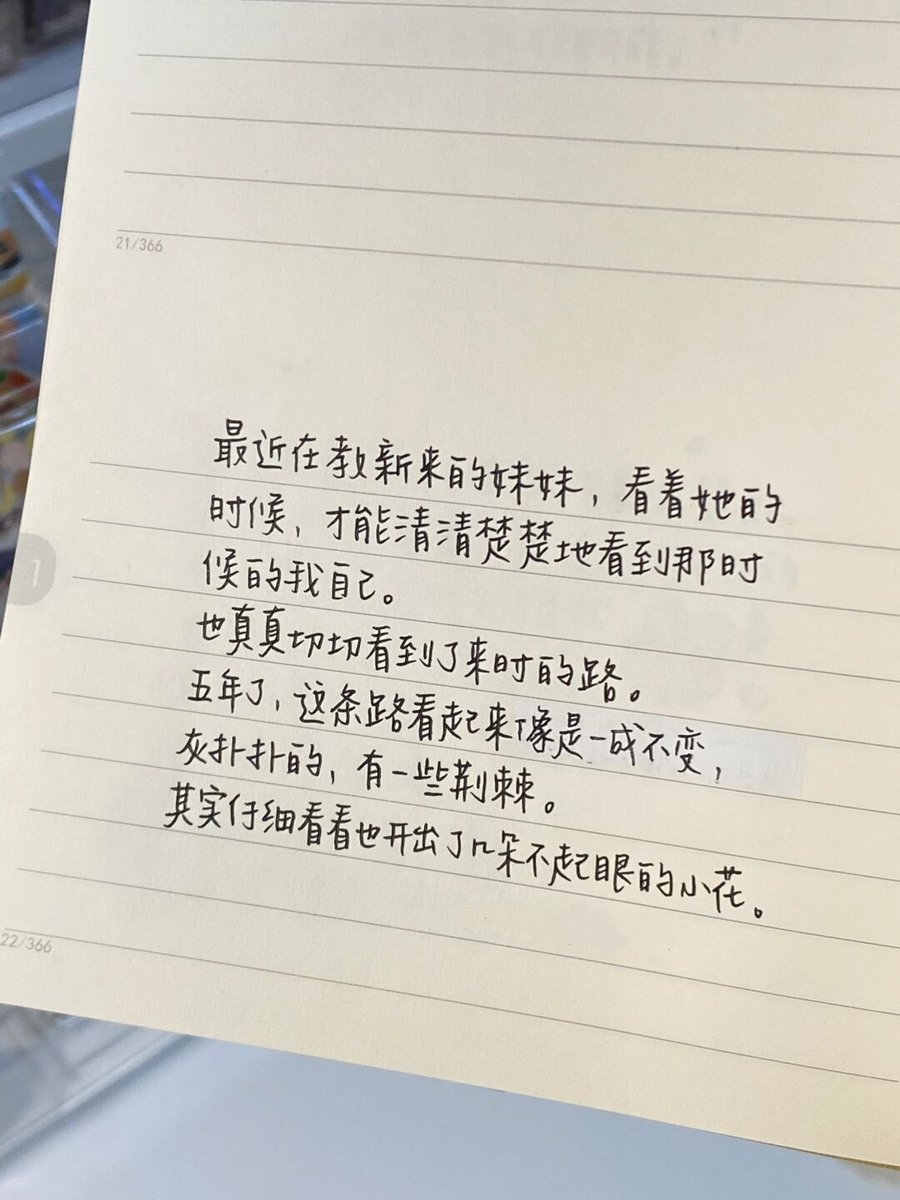 21/366
最近在教新来的妹妹，看着她的
时候，才能清清楚楚地看到那时
候的我自己。
也真真切切看到了来时的路。
五年了，这条路看起来像是一成不变，
灰扑扑的，有一些荆棘。
其实仔细看看也开出了几朵不起眼的小花。
22/366